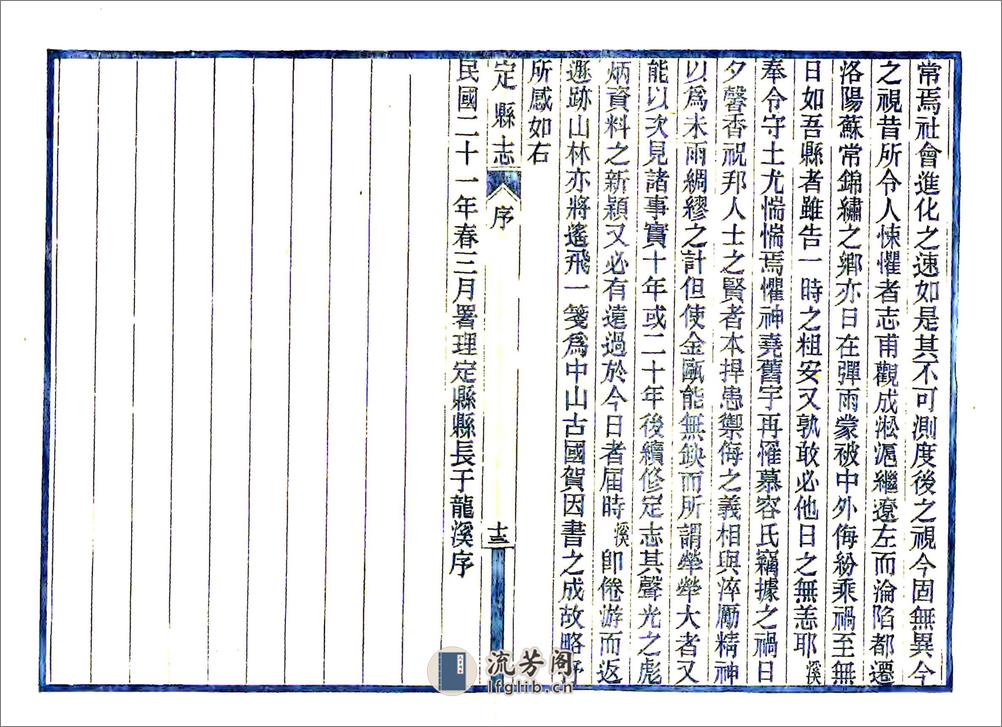 常焉社會進化之速如是其不可測度後之視今固無異今
之視昔所令人悚懼者志甫觀成淞滬繼遼左而淪陷都遷
洛陽蘇常錦繡之鄉亦日在彈雨蒙被中外侮紛乘禍至無
日如吾縣者雖告一時之粗安又孰敢必他日之無恙耶溪
奉令守土尤惴惴焉懼神堯舊宇再罹慕容氏竊據之禍日
夕馨香祝邦人士之賢者本捍患禦侮之義相與淬厲精神
以爲未雨綢繆之計但使金甌能無缺而所謂犖犖大者又
能以次見諸事實十年或二十年後續修定志其聲光之彪
炳資料之新穎又必有遠過於今日者届時溪即倦游而返
遯跡山林亦將遙飛一箋爲中山古國賀因書之成故略抒
所感如右
定縣志
序
十三
民國二十一年春三月署理定縣縣長于龍溪序
流芳阁
lfglib.cn